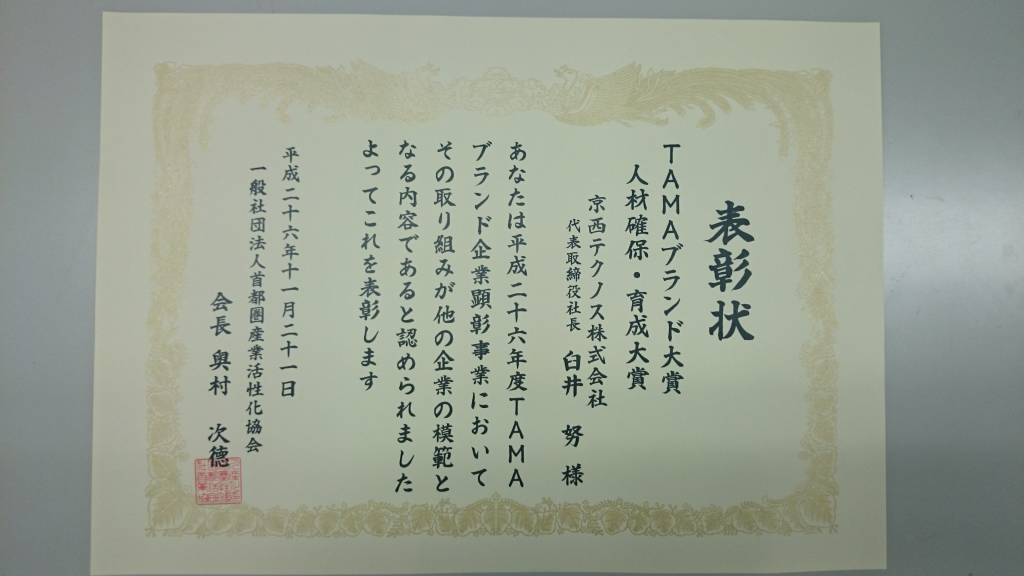 表彰状
TAMAブランド大賞
人材確保・育成大賞
京西テクノス株式会社
代表取締役社長 臼井 努 様
あなたは平成二十六年度TAMA
ブランド企業顕彰事業において
その取り組みが他の企業の模範と
なる内容であると認められました
よってこれを表彰します
平成二十六年十一月二十一日
一般社団法人首都圏産業活性化協会
会長 奥村 次徳